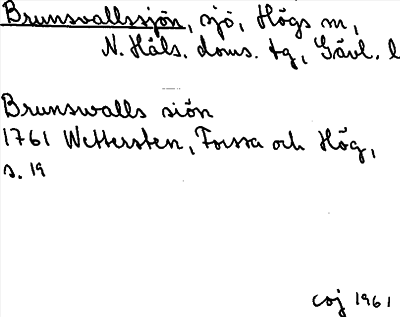 Brunsvallssjön, sjö, Högs sn,
N. Häls. doms. tg, Gävl. l
Brunswalls siön
1761 Wettersten, Forssa och Hög,
s. 19
coj 1961